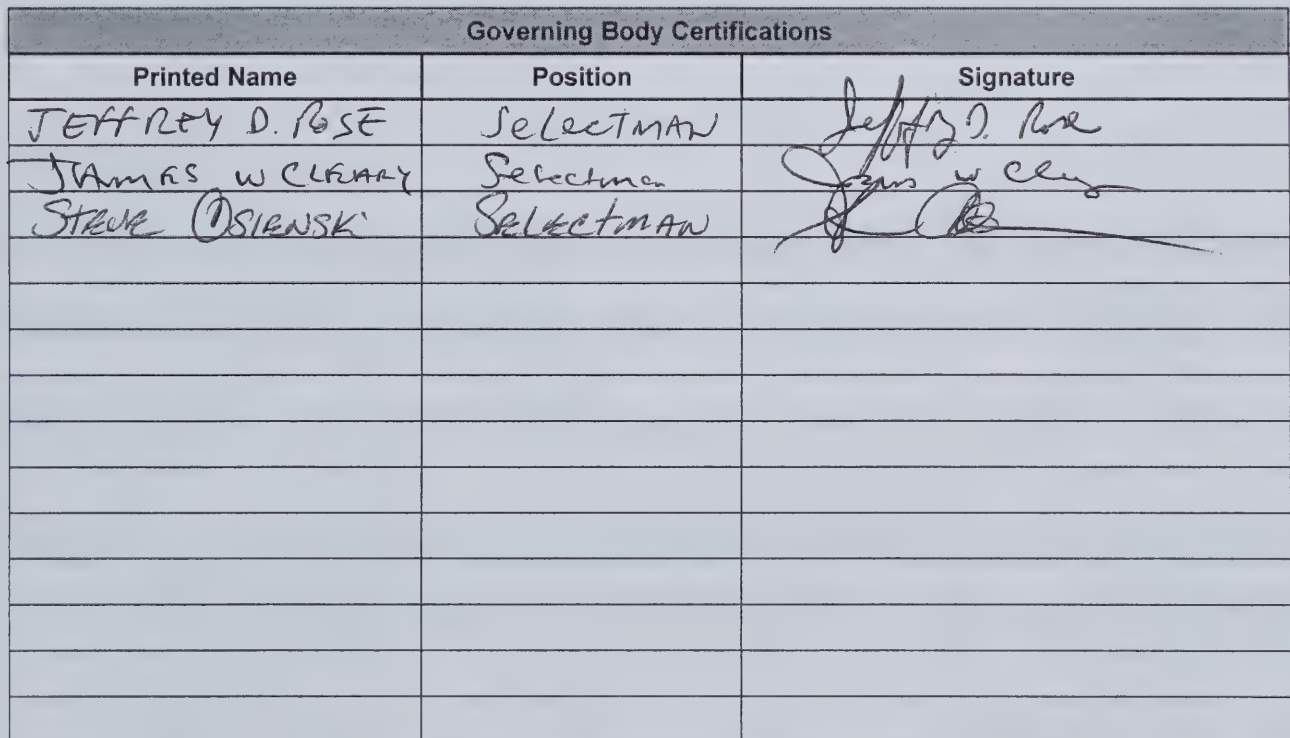 Governing Body Certifications
Printed Name Position Signature
JEFFREY D. ROSE SELECTMAN Jeffrey D. Rose
JAMES W CLEARY Selectman James W Cleary
STEVE OSIENSKI SELECTMAN